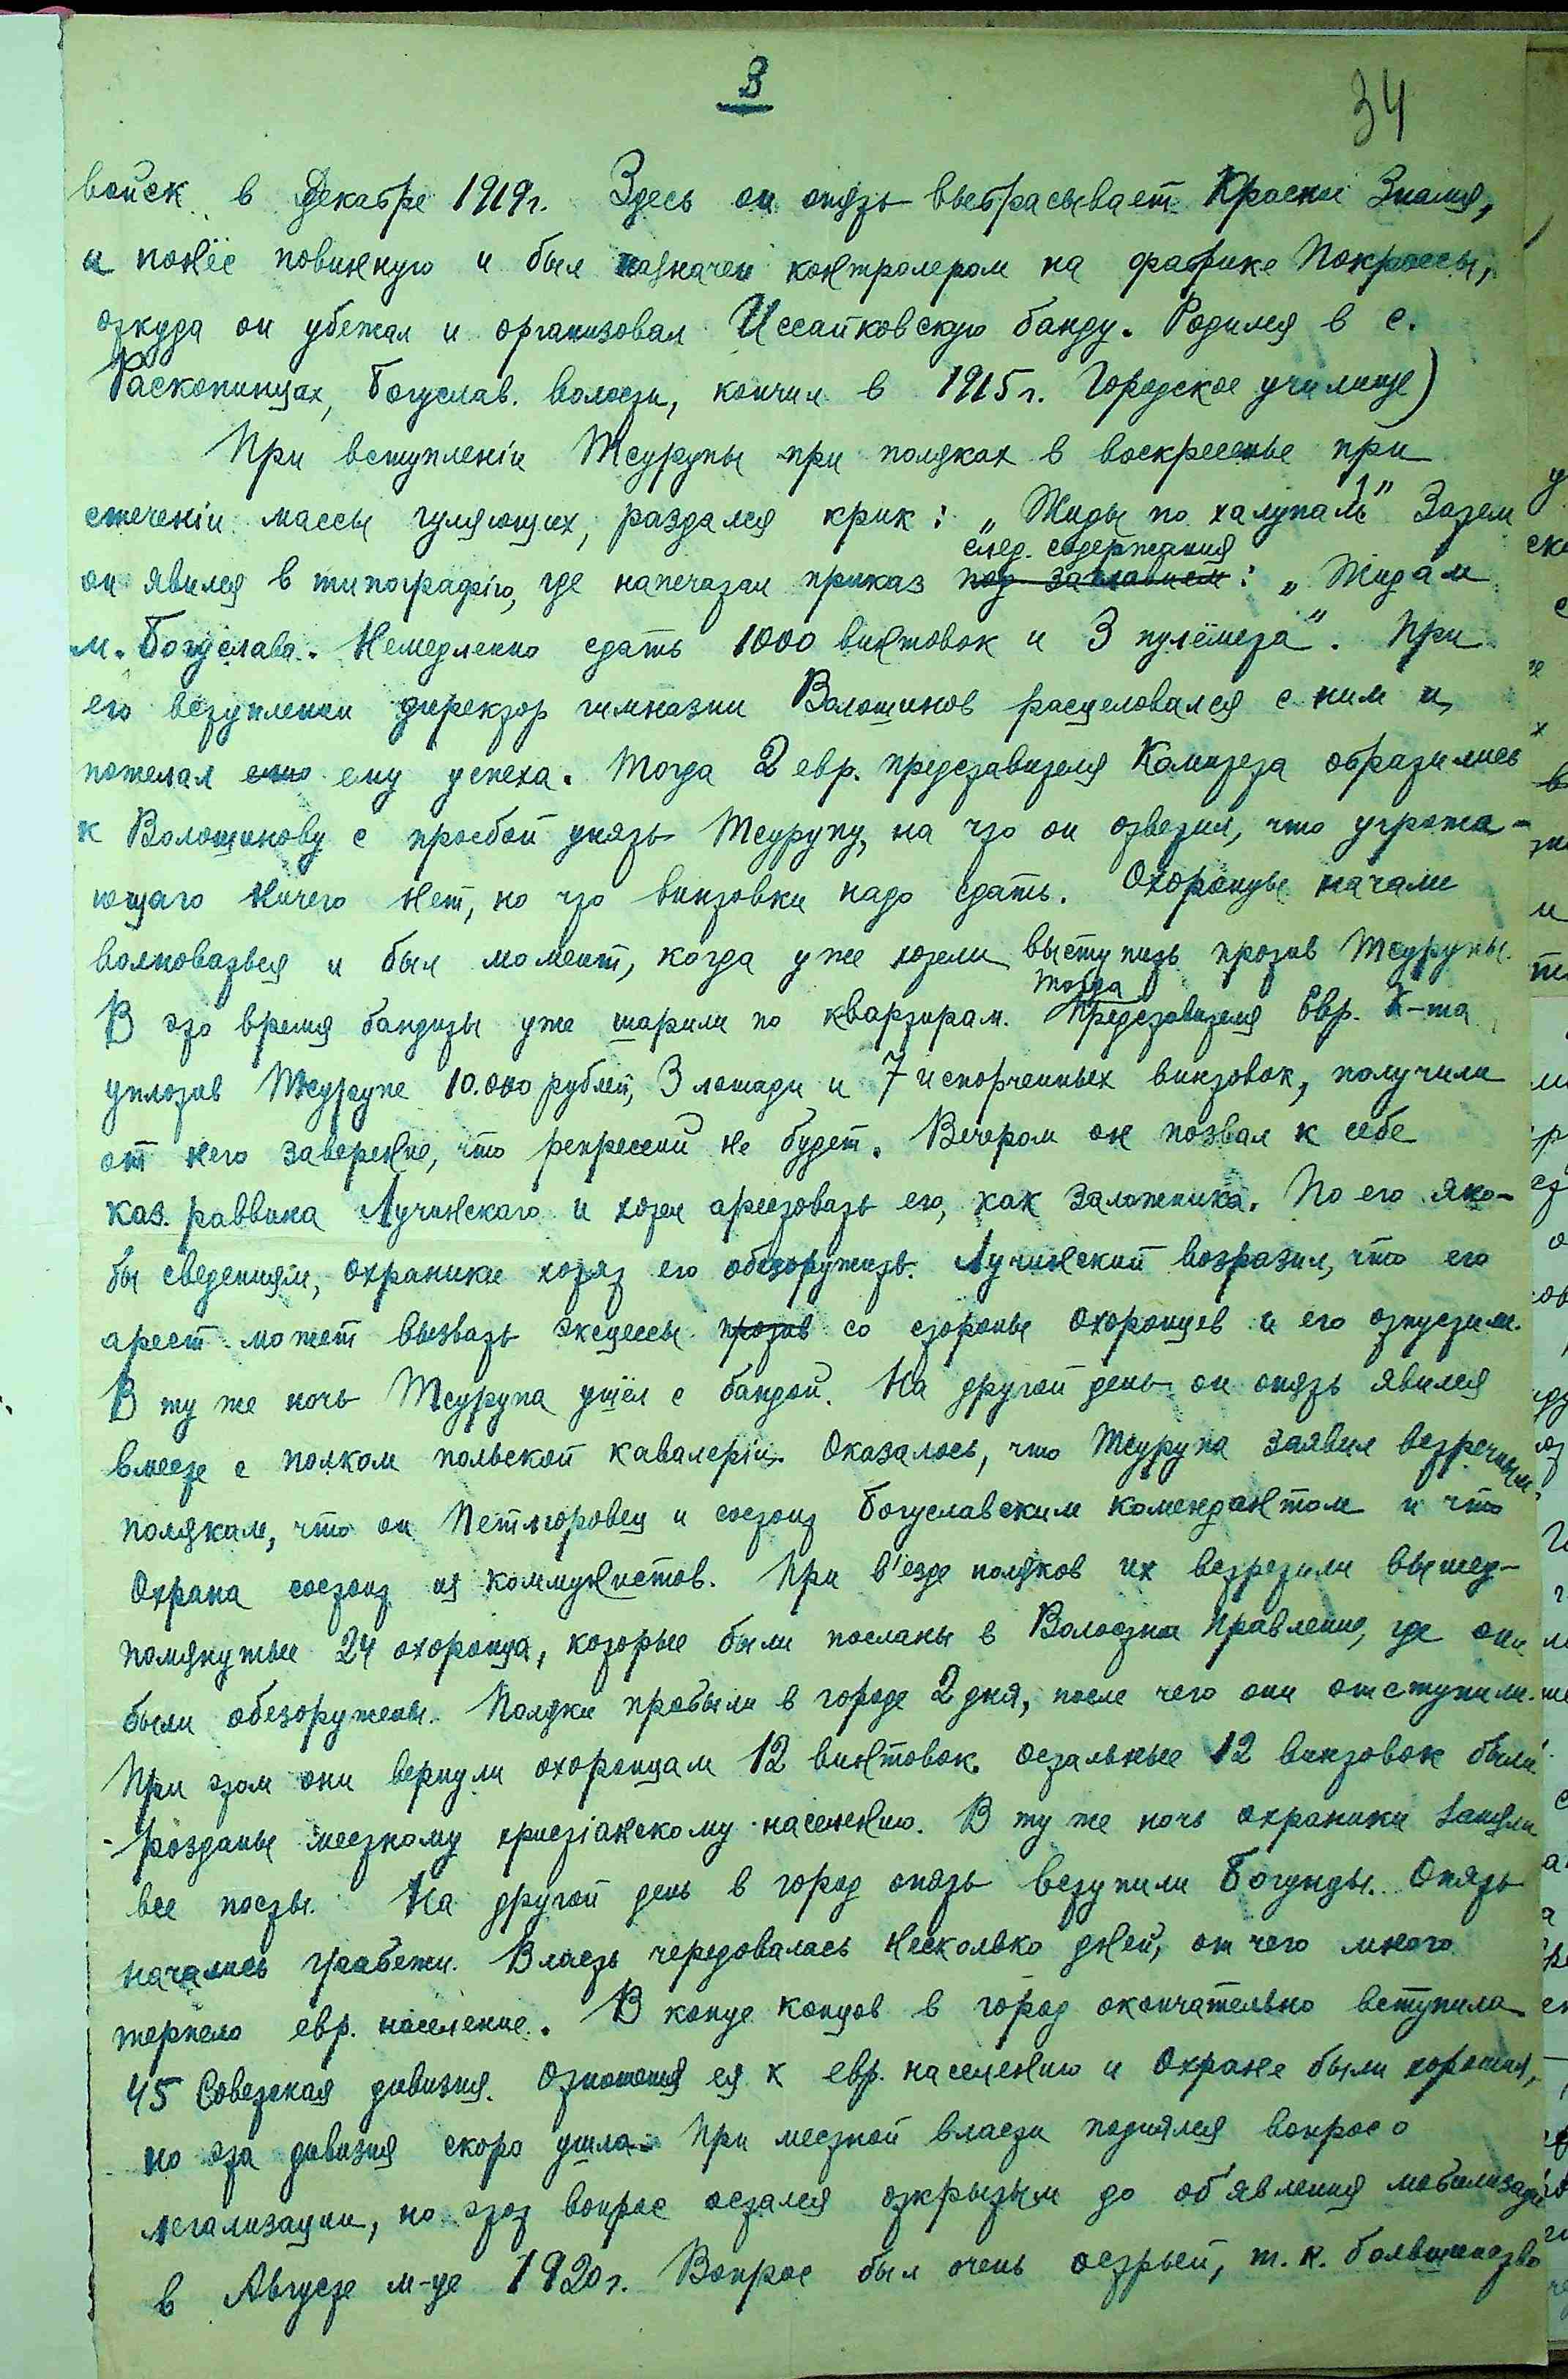 3
34
войск в Декабре 1919г. Здесь он опять выбрасывает Красное Знамя,
и понёс повинную и был назначен контролером на фабрике Покрассы,
откуда он убежал и организовал Иссайковскую банду. Родился в с.
Раскопинцах, Богуслав. волости, кончил в 1915г. Городское училище)
При вступленіи Тсурупы при поляках в воскресенье при
стеченіи массы гуляющих, раздался крик: „Жиды по халупам!" Затем
он явился в типографію, где напечатал приказ под заглавием след. содержания: „Жидам
м. Богуслава. Немедленно сдать 1000 винтовок и 3 пулемёта". При
его вступлении директор гимназии Волошинов расцеловался с ним и,
пожелал ему ему успеха. Тогда 2 евр. представителя Комитета обратились
к Волошинову с просьбой унять Тсурупу, на что он ответил, что угрожа-
ющаго ничего нет, но что винтовки надо сдать. Охоронцы начали
волноваться и был момент, когда уже хотели выступить против Тсурупы.
В это время бандиты уже шарили по квартирам. Тогда Представителя Евр. К-та
уплотив Тсурупе 10.000 рублей, 3 лошади и 7 испорченных винтовок, получили
от него заверение, что репрессий не будет. Вечером он позвал к себе
каз. раввина Лучинскаго и хотел арестовать его, как заложника. По его яко-
бы сведениям, охраники хотят его обезоружить. Лучинский возразил, что его
арест может вызвать эксцессы против со стороны охоронцев и его отпустили.
В ту же ночь Тсурупа ушёл с бандой. На другой день он опять явился
вместе с полком польской кавалеріи. Оказалось, что Тсурупа заявил встречным
полякам, что он Петлюровец и состоит Богуславским комендантом и что
Охрана состоит из коммунистов. При в'езде поляков их встретили вышеу-
помянутые 24 охоронца, которые были посланы в Волостное Правление, где они
были обезоружены. Поляки пробыли в городе 2 дня, после чего они отступили.
При этом они вернули охоронцам 12 винтовок. Остальные 12 винтовок были
розданы местному христіанскому населению. В ту же ночь охраники заняли
все посты. На другой день в город опять вступили Богунцы. Опять
начались грабежи. Власть чередовалась несколько дней, от чего много
терпело евр. население. В конце концов в город окончательно вступила
45 Советская дивизия. Отношения ея к евр. населению и Охране были хорошия,
но эта дивизия скоро ушла. При местной власти поднялся вопрос о
легализации, но этот вопрос остался открытым до об'явления мобилизаціи
в Августе м-це 1920г. Вопрос был очень острый, т.к. большинство